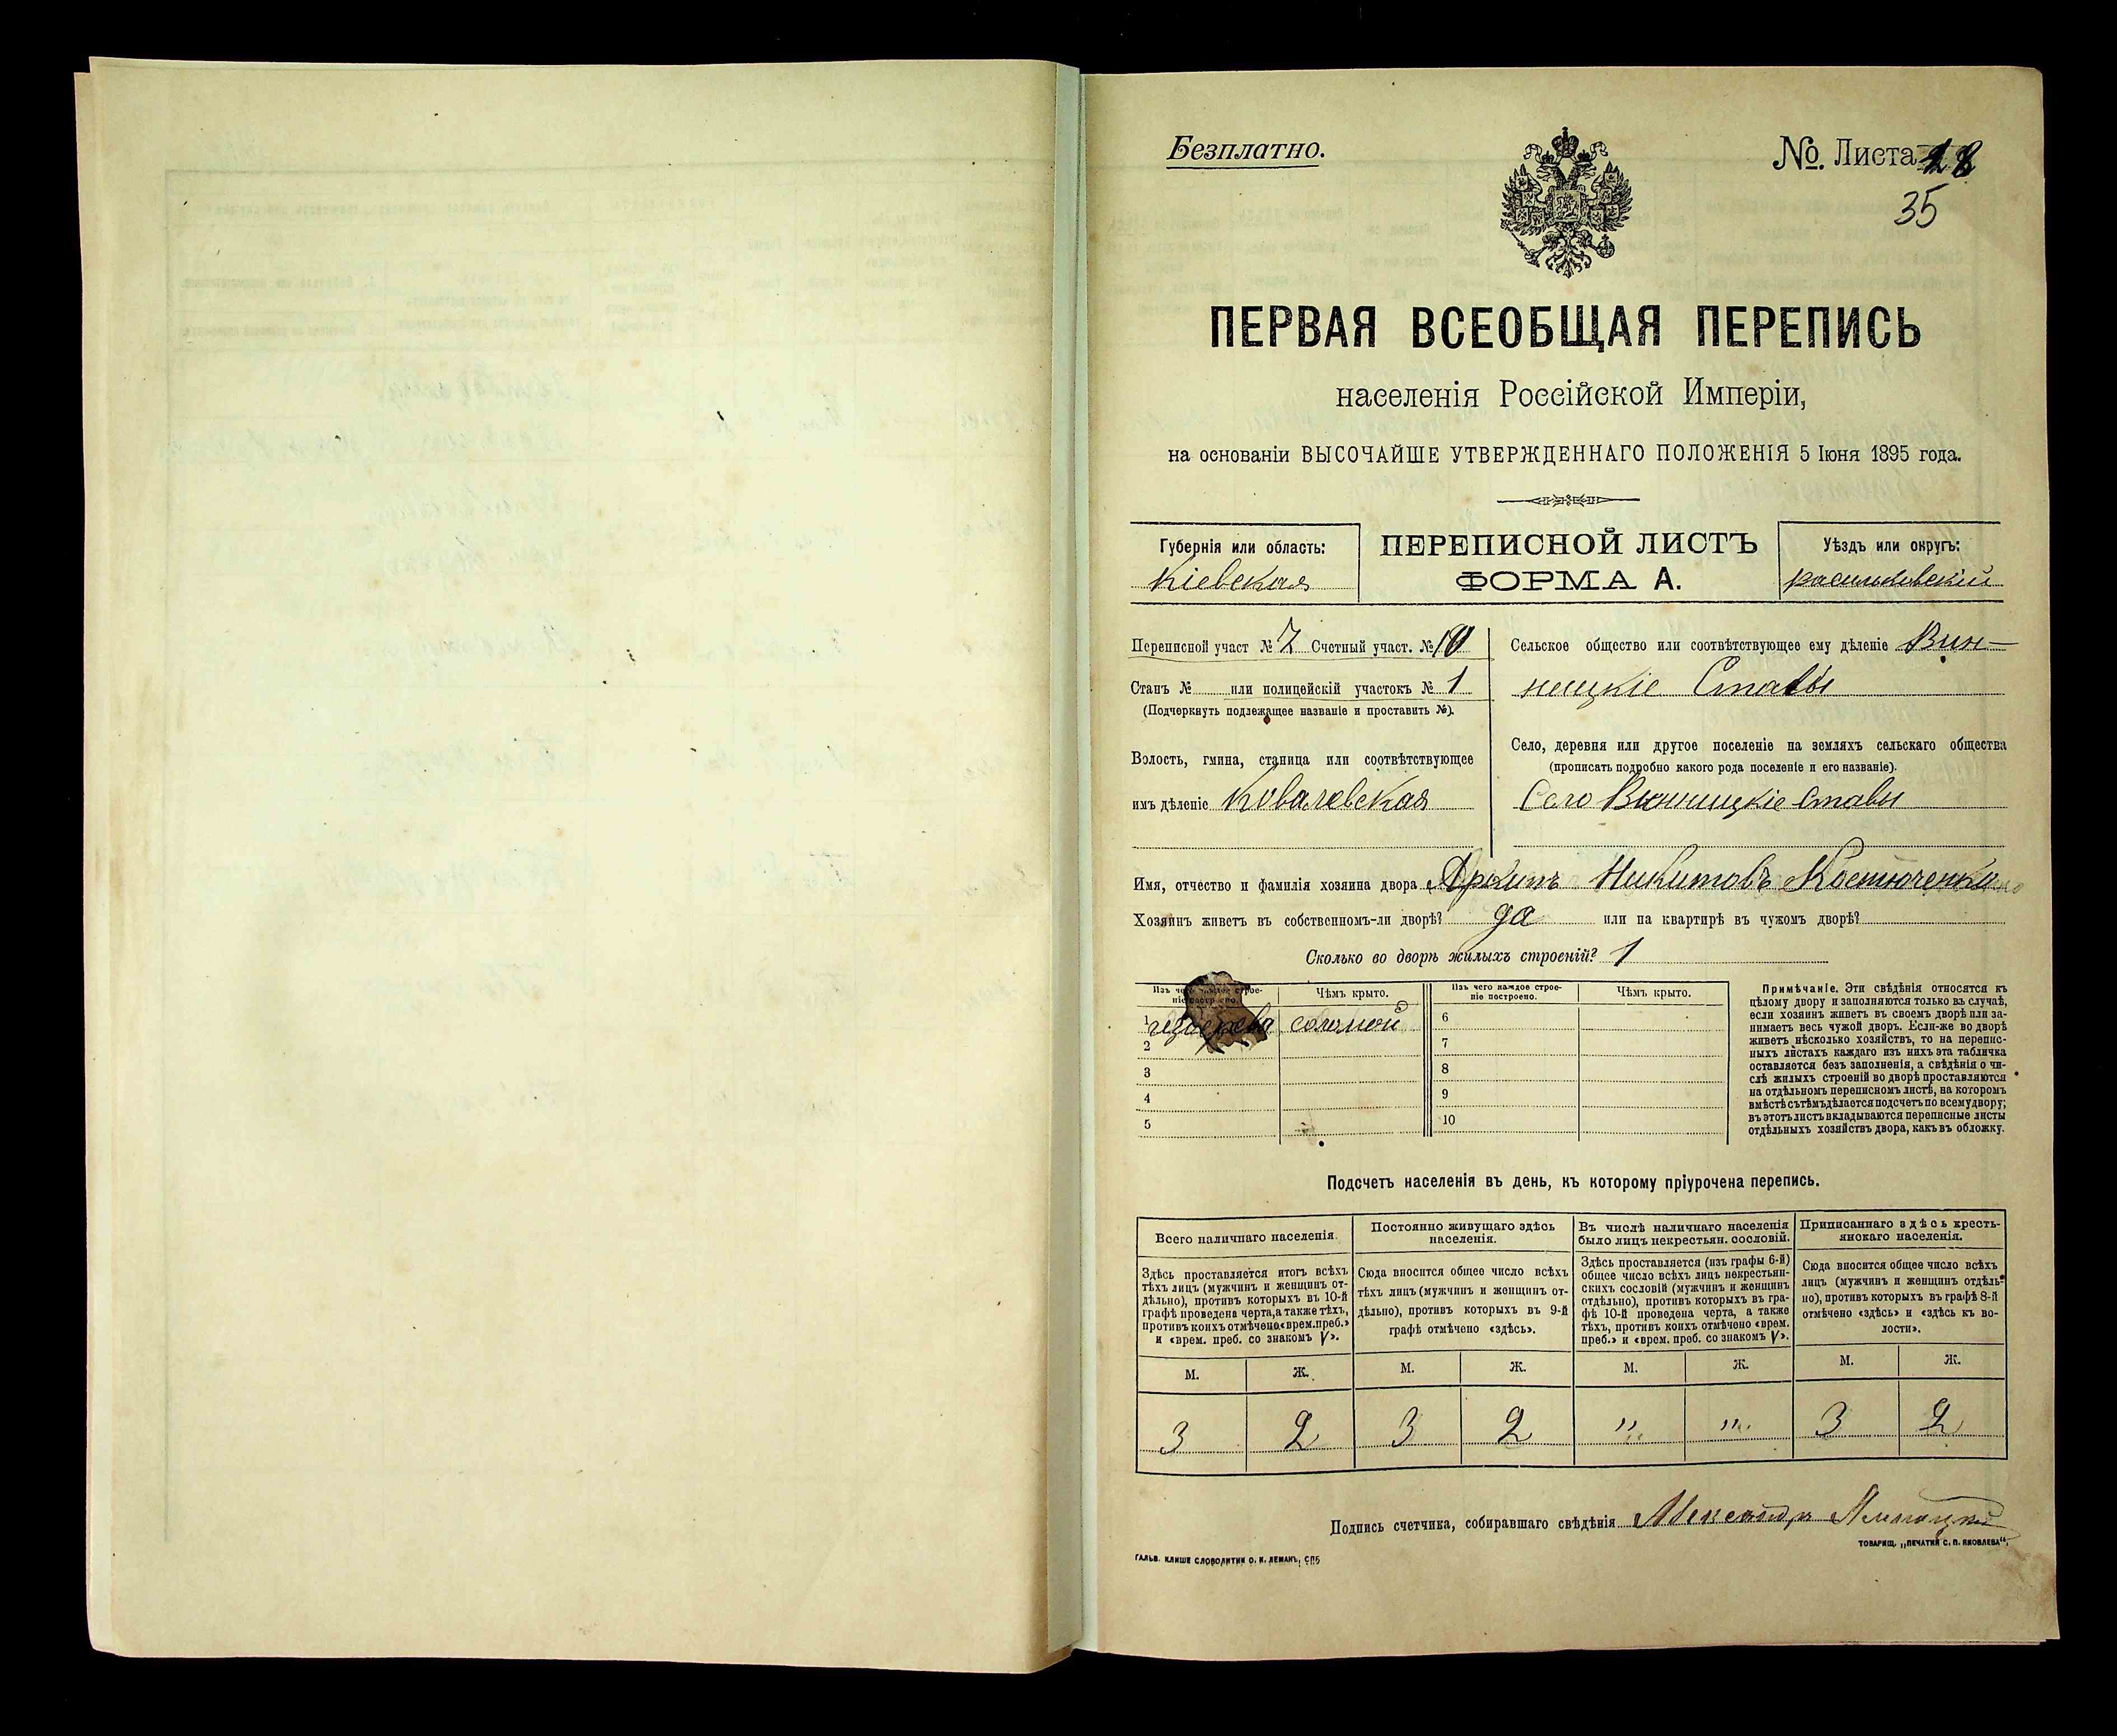 Безплатно.
№. Листа 28
35
ПЕРВАЯ ВСЕОБЩАЯ ПЕРЕПИСЬ
населенія Россійской Имперіи,
на основаніи ВЫСОЧАЙШЕ УТВЕРЖДЕННАГО ПОЛОЖЕНІЯ 5 Іюня 1895 года.
Губернія или область:
Кіевская
ПЕРЕПИСНОЙ ЛИСТЪ
ФОРМА А.
Уѣздъ или округъ:
Васильковскій
Переписной участ № 7 Счетный участ. № 10
Станъ № или полицейскій участокъ № 1
(Подчеркнуть подлежащее названіе и проставить №).
Волость, гмина, станица или соотвѣтствующее
имъ дѣленіе Ковалевская
Сельское общество или соотвѣтствующее ему дѣленіе Вин-
ницкіе Ставы
Село, деревня или другое поселеніе на земляхъ сельскаго общества
(прописать подробно какого рода поселеніе и его названіе).
Село Винницкіе Ставы
Имя, отчество и фамилія хозяина двора Архипъ Никитовъ Костюченко
Хозяинъ живетъ въ собственномъ-ли дворѣ? да или на квартирѣ въ чужомъ дворѣ?
Сколько во дворѣ жилыхъ строеній? 1
Изъ чего каждое строе-
ніе построено.
Чѣмъ крыто.
Изъ чего каждое строе-
ніе построено.
Чѣмъ крыто.
1 изъ дерева соломой
2
3
4
5
6
7
8
9
10
Примѣчаніе. Эти свѣдѣнія относятся къ
цѣлому двору и заполняются только въ случаѣ,
если хозяинъ живетъ въ своемъ дворѣ или за-
нимаетъ весь чужой дворъ. Если-же во дворѣ
живетъ нѣсколько хозяйствъ, то на перепис-
ныхъ листахъ каждаго изъ нихъ эта табличка
оставляется безъ заполненія, а свѣдѣнія о чи-
слѣ жилыхъ строеній во дворѣ проставляются
на отдѣльномъ переписномъ листѣ, на которомъ
вмѣстѣ съ тѣмъ дѣлается подсчетъ по всему двору;
въ этотъ листъ вкладываются переписные листы
отдѣльныхъ хозяйствъ двора, какъ въ обложку.
Подсчетъ населенія въ день, къ которому пріурочена перепись.
Всего наличнаго населенія.
Здѣсь проставляется итогъ всѣхъ
тѣхъ лицъ (мужчинъ и женщинъ от-
дѣльно), противъ которыхъ въ 10-й
графѣ проведена черта, а также тѣхъ,
противъ коихъ отмѣчено «врем. преб.»
и «врем. преб. со знакомъ V».
Постоянно живущаго здѣсь
населенія.
Сюда вносится общее число всѣхъ
тѣхъ лицъ (мужчинъ и женщинъ от-
дѣльно), противъ которыхъ въ 9-й
графѣ отмѣчено «здѣсь».
Въ числѣ наличнаго населенія
было лицъ некрестьян. сословій.
Здѣсь проставляется (изъ графы 6-й)
общее число всѣхъ лицъ некрестьян-
скихъ сословій (мужчинъ и женщинъ
отдѣльно), противъ которыхъ въ гра-
фѣ 10-й проведена черта, а также
тѣхъ, противъ коихъ отмѣчено «врем.
преб.» и «врем. преб. со знакомъ V».
Приписаннаго здѣсь кресть-
янскаго населенія.
Сюда вносится общее число всѣхъ
лицъ (мужчинъ и женщинъ отдѣль-
но), противъ которыхъ въ графѣ 8-й
отмѣчено «здѣсь» и «здѣсь къ во-
лости».
М. Ж. М. Ж. М. Ж. М. Ж.
3 2 3 2 " " 3 2
Подпись счетчика, собиравшаго свѣдѣнія Александръ
ТОВАРИЩ. „ПЕЧАТНЯ С. П. ЯКОВЛЕВА“.
ГАЛЬВ. КЛИШЕ СЛОВОЛИТНИ О. И. ЛЕМАНЪ, СПБ